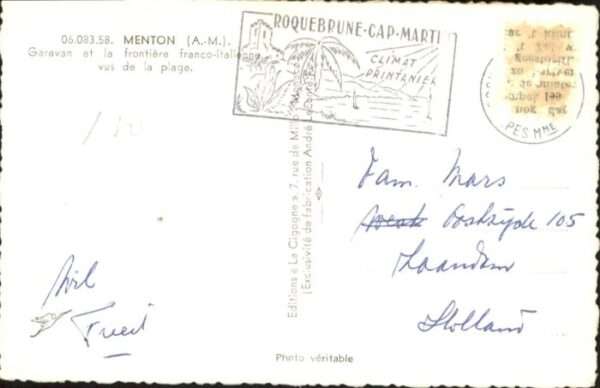 06.083.58. MENTON (A.-M.).
Garavan et la frontière franco-italienne
vus de la plage.
ROQUEBRUNE-CAP-MARTI
CLIMAT
PRINTANIER
PES MME
Editions « La Cigogne » 7, rue de
(Exclusivité de fabrication André
Fam. Mars
Oostzijde 105
Zaandam
Holland
Wil
Photo véritable